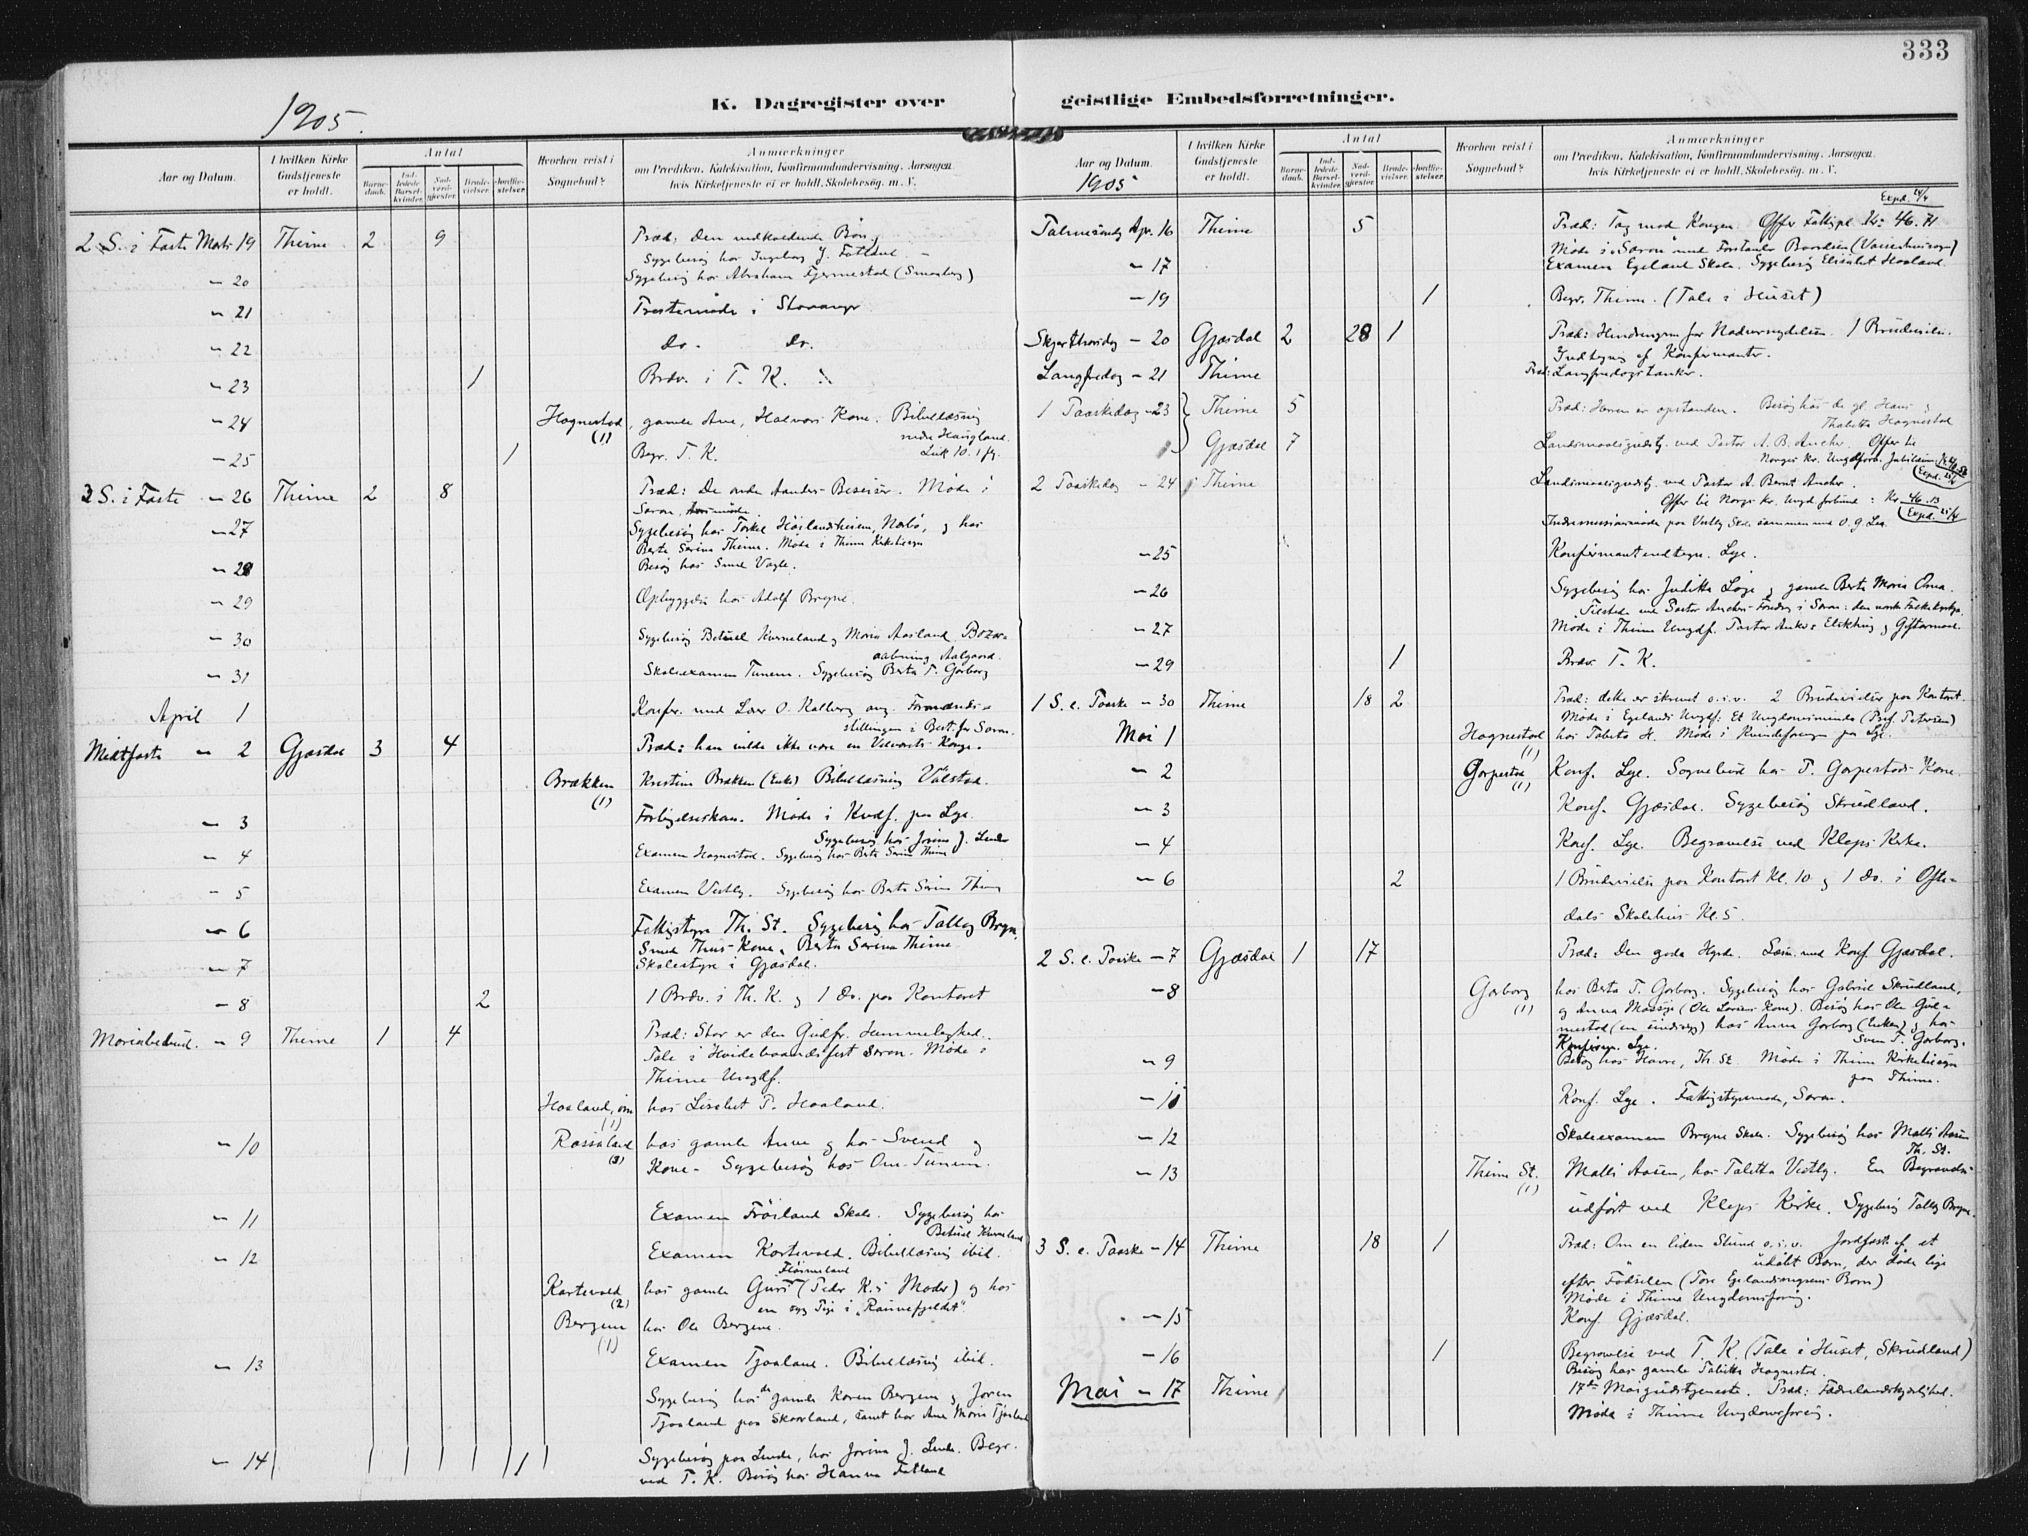 333
K. Dagregister over geistlige Embedsforretninger.
1905.
Aar og Datum.
I hvilken Kirke Gudstjeneste er holdt.
Antal
Barne-daab.
Ind-ledede Barsel-kvinder.
Nad-verd-gjester
Brude-vielser
Jordfæ-stelser
Hvorhen reist i Sognebud?
Anmærkninger
om Prædiken, Katekisation, Konfirmandundervisning, Aarsagen
hvis Kirketjeneste ei er holdt, Skolebesøg, m. V.
2 S. i Faste Marts 19 Thime 2 9 Præd: Den vedholdende Bøn
Sygebesøg hos Ingeborg J. Fotland
- 20 Sygebesøg hos Abraham Fjermestad
- 21 Prestemøde i Stavanger
- 22 do. do.
- 23 1 Brdv. i T. K.
- 24 Hognestad (1) gamle Ane, Halvors Kone. Bibellæsning
Luk 10. 1 fg.
- 25 1 Begr. T. K.
3 S. i Faste - 26 Thime 2 8 Præd: De onde Aanders Beseirer. Møde i
Saron.
- 27 Sygebesøg hos Torkel Høilandsheien, Nærbø, og hos
Berte Serina Thime. Møde i Thime
- 28 Besøg hos Vagle.
- 29 Opbyggelse hos Adolf Bryne.
- 30 Sygebesøg Betuel Kverneland og Maria Aasland. Bazar-
aabning Aalgaard.
- 31 Skoleexamen Tunem. Sygebesøg Berta T. Garborg
April 1 Konfer. med O. Kalberg ang. Formands-
stillingen i Best. for Saron.
Midtfaste - 2 Gjæsdal 3 4 Præd: han vilde ikke være en Konge.
Brækken (1) Kristine Brækken (Enke) Bibellæsning Vålstad.
- 3 Møde i Kvdf. paa Lye.
Sygebesøg hos Jorine J. Lende
- 4 Examen Hognestad. Sygebesøg hos Berte Serine Thime
- 5 Examen Vestly. Sygebesøg hos Berte Serine Thime
- 6 Fattigstyre Th. St. Sygebesøg hos Talleg Bryne,
Kone, Berta Serena Thime
- 7 Skolestyre i Gjæsdal.
- 8 2 1 Brdv. i Th. K. og 1 do. paa Kontoret
Mariabebud. - 9 Thime 1 4 Præd: Stor er den Gudfr. Hemmelighed.
Tale i Hvidebaandsfest Saron. Møde i
Thime Ungdf.
Haaland (1) hos Lisebet T. Haaland.
- 10 Rossaland (3) hos gamle Anne og hos Svend og
Kone. Sygebesøg hos Tunem.
- 11 Examen Frøiland Skole. Sygebesøg hos
Betuel Kverneland
- 12 Examen Kartevold. Bibellæsning ibid.
Kartevold (2) hos gamle Guri (Peder K.s Moder) og hos
en syg Pige i "Rannefjeldet"
Bergene (1) hos Ole Bergene.
- 13 Examen Tjaaland. Bibellæsning ibid.
Sygebesøg hos gamle Karen Bergene og Joren
Tjaaland paa Skaarland, samt hos Ane Maria Tjaaland
- 14 1 Sygebesøg paa Lende, hos Jorina J. Lende. Begr.
ved T. K. Besøg hos Hanna Fotland
Aar og Datum. 1905
I hvilken Kirke Gudstjeneste er holdt.
Antal
Barne-daab.
Ind-ledede Barsel-kvinder
Nad-verd-gjester
Brude-vielser
Jordfæ-stelser
Hvorhen reist i Sognebud?
Anmærkninger
om Prædiken, Katekisation, Konfirmandundervisning, Aarsagen
hvis Kirketjeneste ei er holdt, Skolebesøg, m. V.
Exped. 24/4
Palmesøndag Apr. 16 Thime 5 Præd: Tag mod Kongen. Offer Fattigpl. Kr: 46.71
Møde i "Saron" med Forstander
- 17 Examen Egeland Skole. Sygebesøg Elisabet Haaland.
- 19 1 Begr. Thime. (Tale i Huset)
Skjærthorsdag - 20 Gjæsdal 2 28 1 Præd: Hindringen for Nadvernydelsen. 1 Brudevielse.
Indtegning af Konfirmanter.
Langfredag - 21 Thime Præd: Langfredagstanker.
1 Paaskedag - 23 Thime 5 Præd: Herren er opstanden. Besøg hos de gl. Hans og
Thalitta Hognestad
Gjæsdal 7 Landsmaalsgudstj. ved Pastor A. B. Ancher. Offer til
Norges kr. Ungdforb. Jubilæum
2 Paaskedag - 24 Thime Landsmaalsgudstj. ved Pastor A. Bernt Ancher.
Offer til Norges kr. Ungd.forbund: Kr 46.13
Indremissionsmøde paa Vestly Skole sammen med O. G. Lea.
- 25 Konfirmantindtegn. Lye.
- 26 Sygebesøg hos Juditta Lage og gamle Berte Maria Oma.
Tilstede ved Pastor Anchers Foredrag i Saron:
- 27 Møde i Thime Ungdf. Pastor Anker: Elskling og Giftermaal.
- 29 1 Brdv. T. K.
1 S. e. Paaske - 30 Thime 18 2 Præd: dette er skrevet o.s.v. 2 Brudevielser paa Kontoret.
Møde i Egelands Ungdf: Et Ungdomsminde (Prof. Petersen)
Mai 1 Hognestad (1) hos Talitta H. Møde i Kvindeforeningen paa Lye.
- 2 Garpestad (1) Konf. Lye. Sognebud hos T. Garpestads Kone.
- 3 Konf. Gjæsdal. Sygebesøg Skrudland.
- 4 Konf. Lye. Begravelse ved Kleps Kirke.
- 6 2 1 Brudevielse paa Kontoret Kl. 10 og 1 do. i Ofte-
dals Skolehus Kl. 5.
2 S. e. Paaske - 7 Gjæsdal 1 17 Præd: Den gode Hyrde. Læsn. med Konf. Gjæsdal.
- 8 Garborg (1) hos Berta T. Garborg. Sygebesøg hos Gabriel Skrudland,
og Anna Mossige (Ole Larsens Kone). Besøg hos Ole
hos Anna Garborg (Enken) og hos
Sven T. Garborg.
Konfirm. Lye.
- 9 Besøg hos Havre, Th. St. Møde i Thime
paa Thime.
- 10 Konf. Lye. Fattigstyremøde, Saron.
- 12 Skoleexamen Bryne Skole. Sygebesøg hos Malli Aasen
Th. St.
- 13 Thime St. (1) Malli Aasen, hos Talitta Vestly. En Begravelse
udført ved Kleps Kirke. Sygebesøg Talleg Bryne.
3 S. e. Paaske - 14 Thime 18 1 Præd: Om en liden Stund o.s.v. Jordfæst. af et
udøbt Barn, der døde lige
efter Fødselen (Tore Egelandsmyrens Barn)
Møde i Thime Ungdomsforening.
- 15 Konf. Gjæsdal.
- 16 1 Begravelse ved T. K. (Tale i Huset, Skrudland)
Besøg hos gamle Talitta Hognestad.
Mai - 17 Thime 17de Maigudstjeneste. Præd: Fædrelandskjærlighed.
Møde i Thime Ungdomsforening.